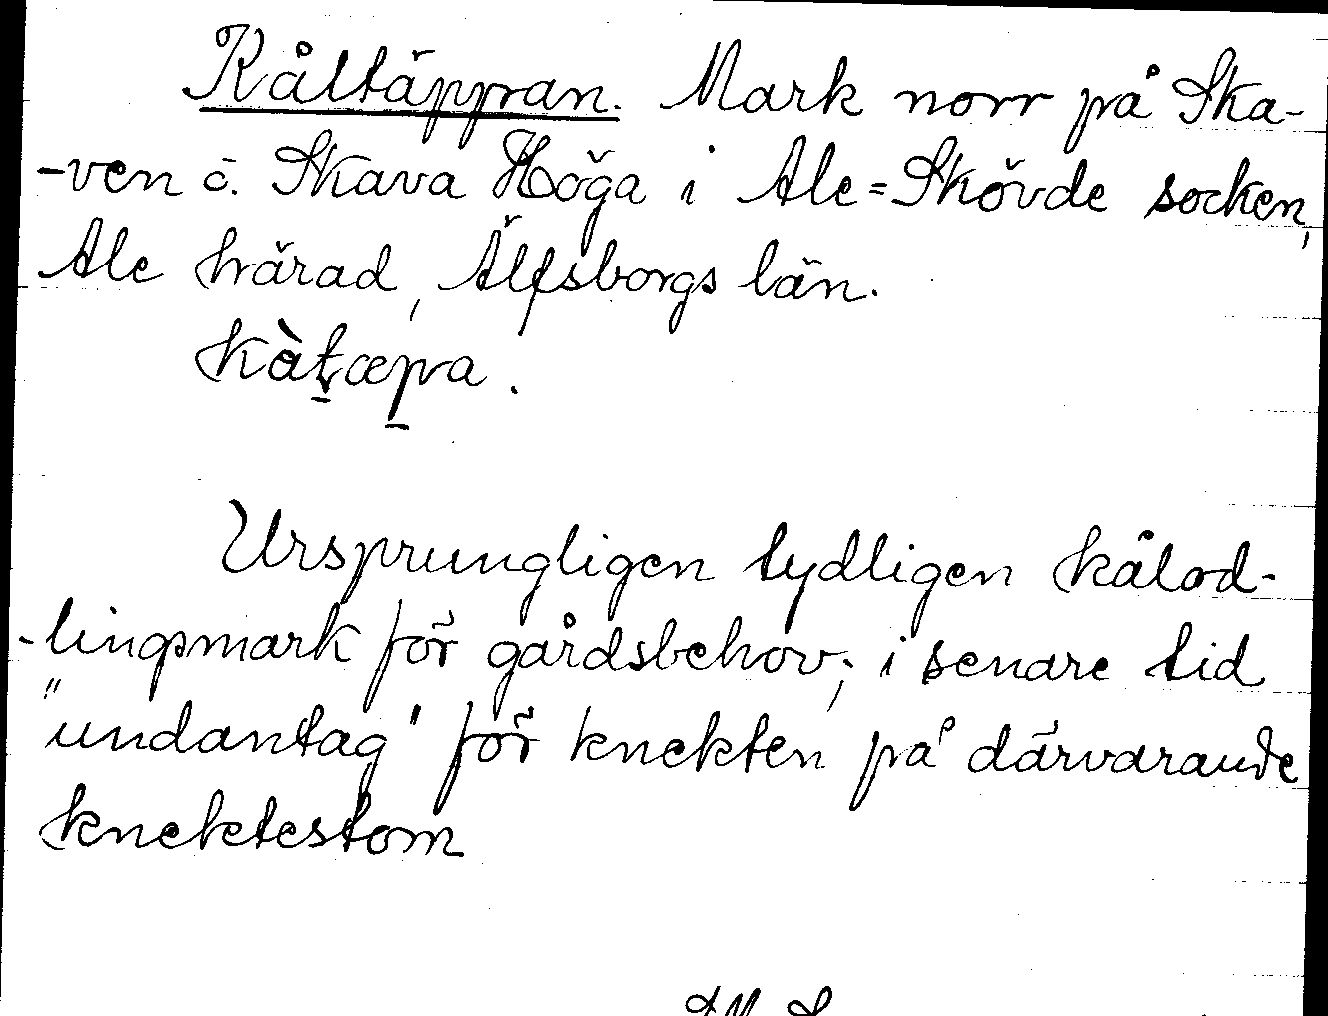 Kåltäppan. Mark norr på Ska-
-ven o. Skava Höga i Ale=Skövde socken,
Ale härad, Älfsborgs län.
kàt̠æp̠a.
Ursprungligen tydligen kålod-
-lingsmark för gårdsbehov; i senare tid
"undantag" för knekten på därvarande
knektestom